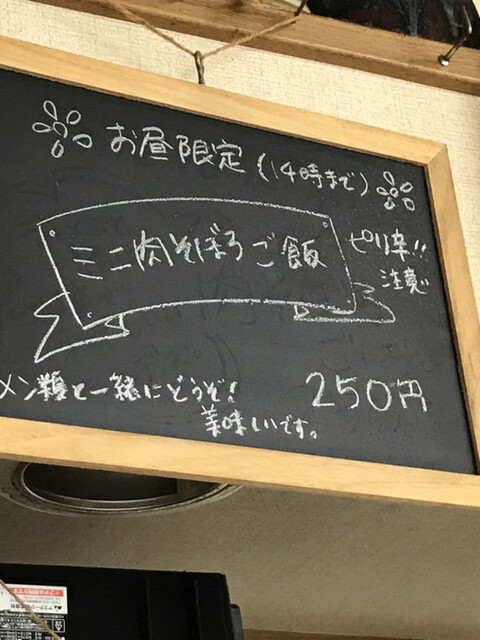 お昼限定(14時まで)
ミニ肉そぼろご飯
ピリ辛!!
注意
メン類と一緒にどうぞ!
250円
美味しいです。